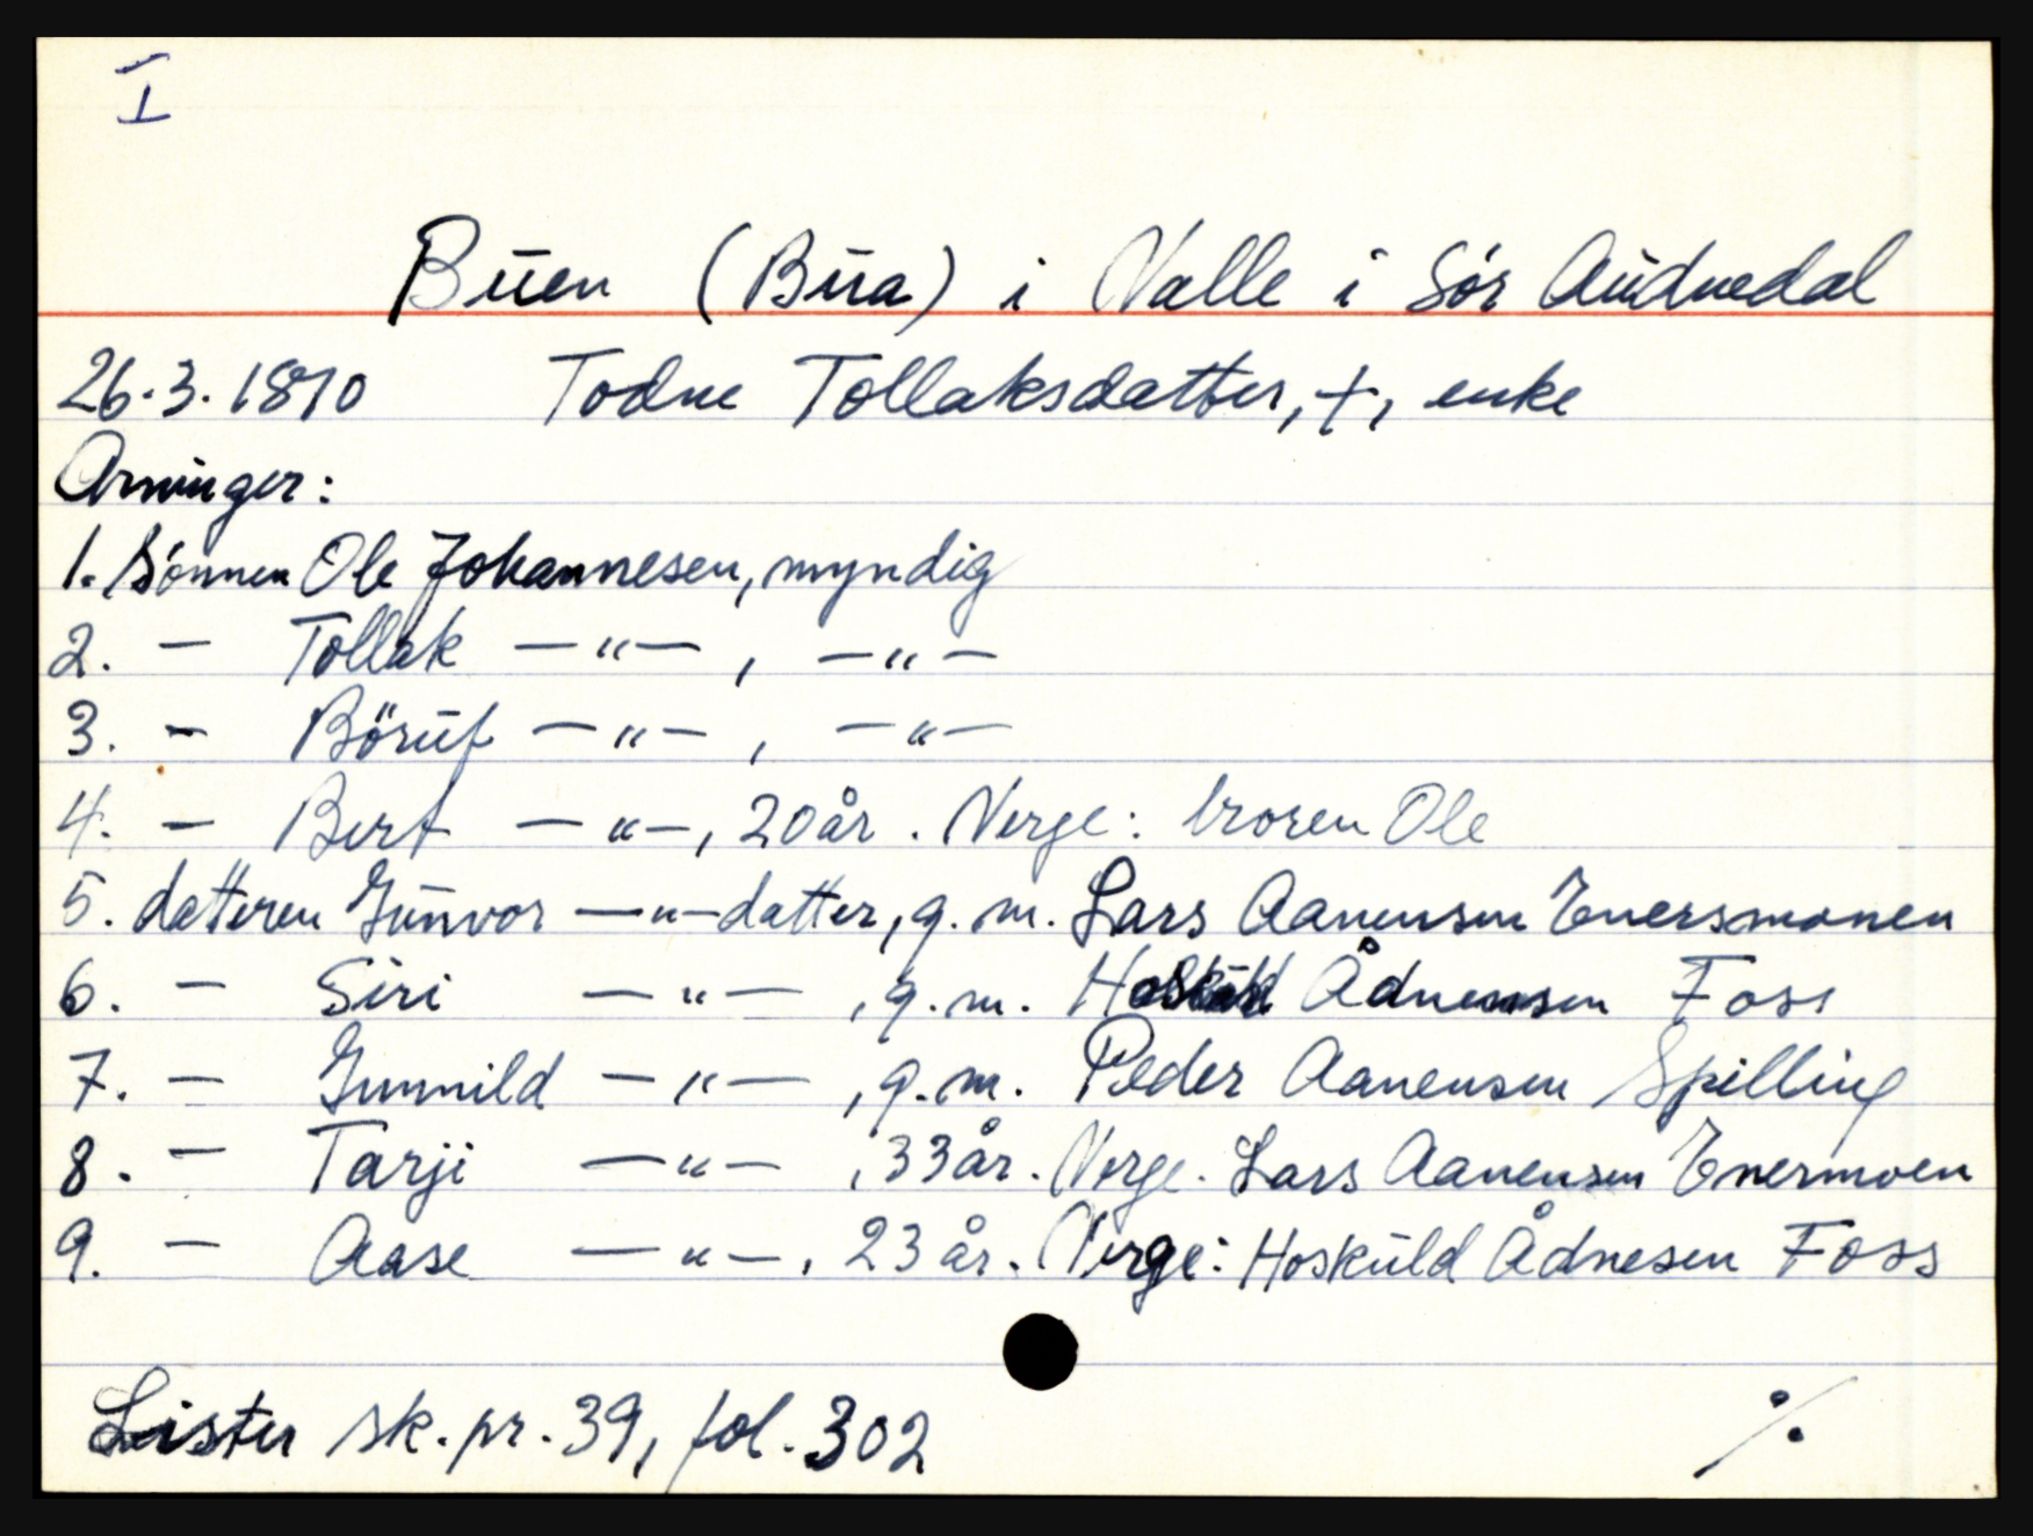 I
Buen (Bua) i Valle i Sør Audnedal
26.3.1810 Todne Tollaksdatter, †, enke
Arvinger:
1. Sønnen Ole Johannesen, myndig
2. — Tollak —"— , —"—
3. — Börut —"— , —"—
4. — Bert —"—, 20 år. Verge: broren Ole
5. datteren Gunvor —"—datter, g. m. Lars Aanensen Enersmonen
6. — Siri —"— , g. m. Hoskuld Ådnensen Foss
7. — Gunnild —"— , g. m. Peder Aanensen Spilling
8. — Tarji —"— , 33 år. Verge. Lars Aanensen Enermoen
9. — Aase —"— , 23 år. Verge: Hoskuld Ådnesen Foss
Lister sk. pr. 39, fol. 302
./.